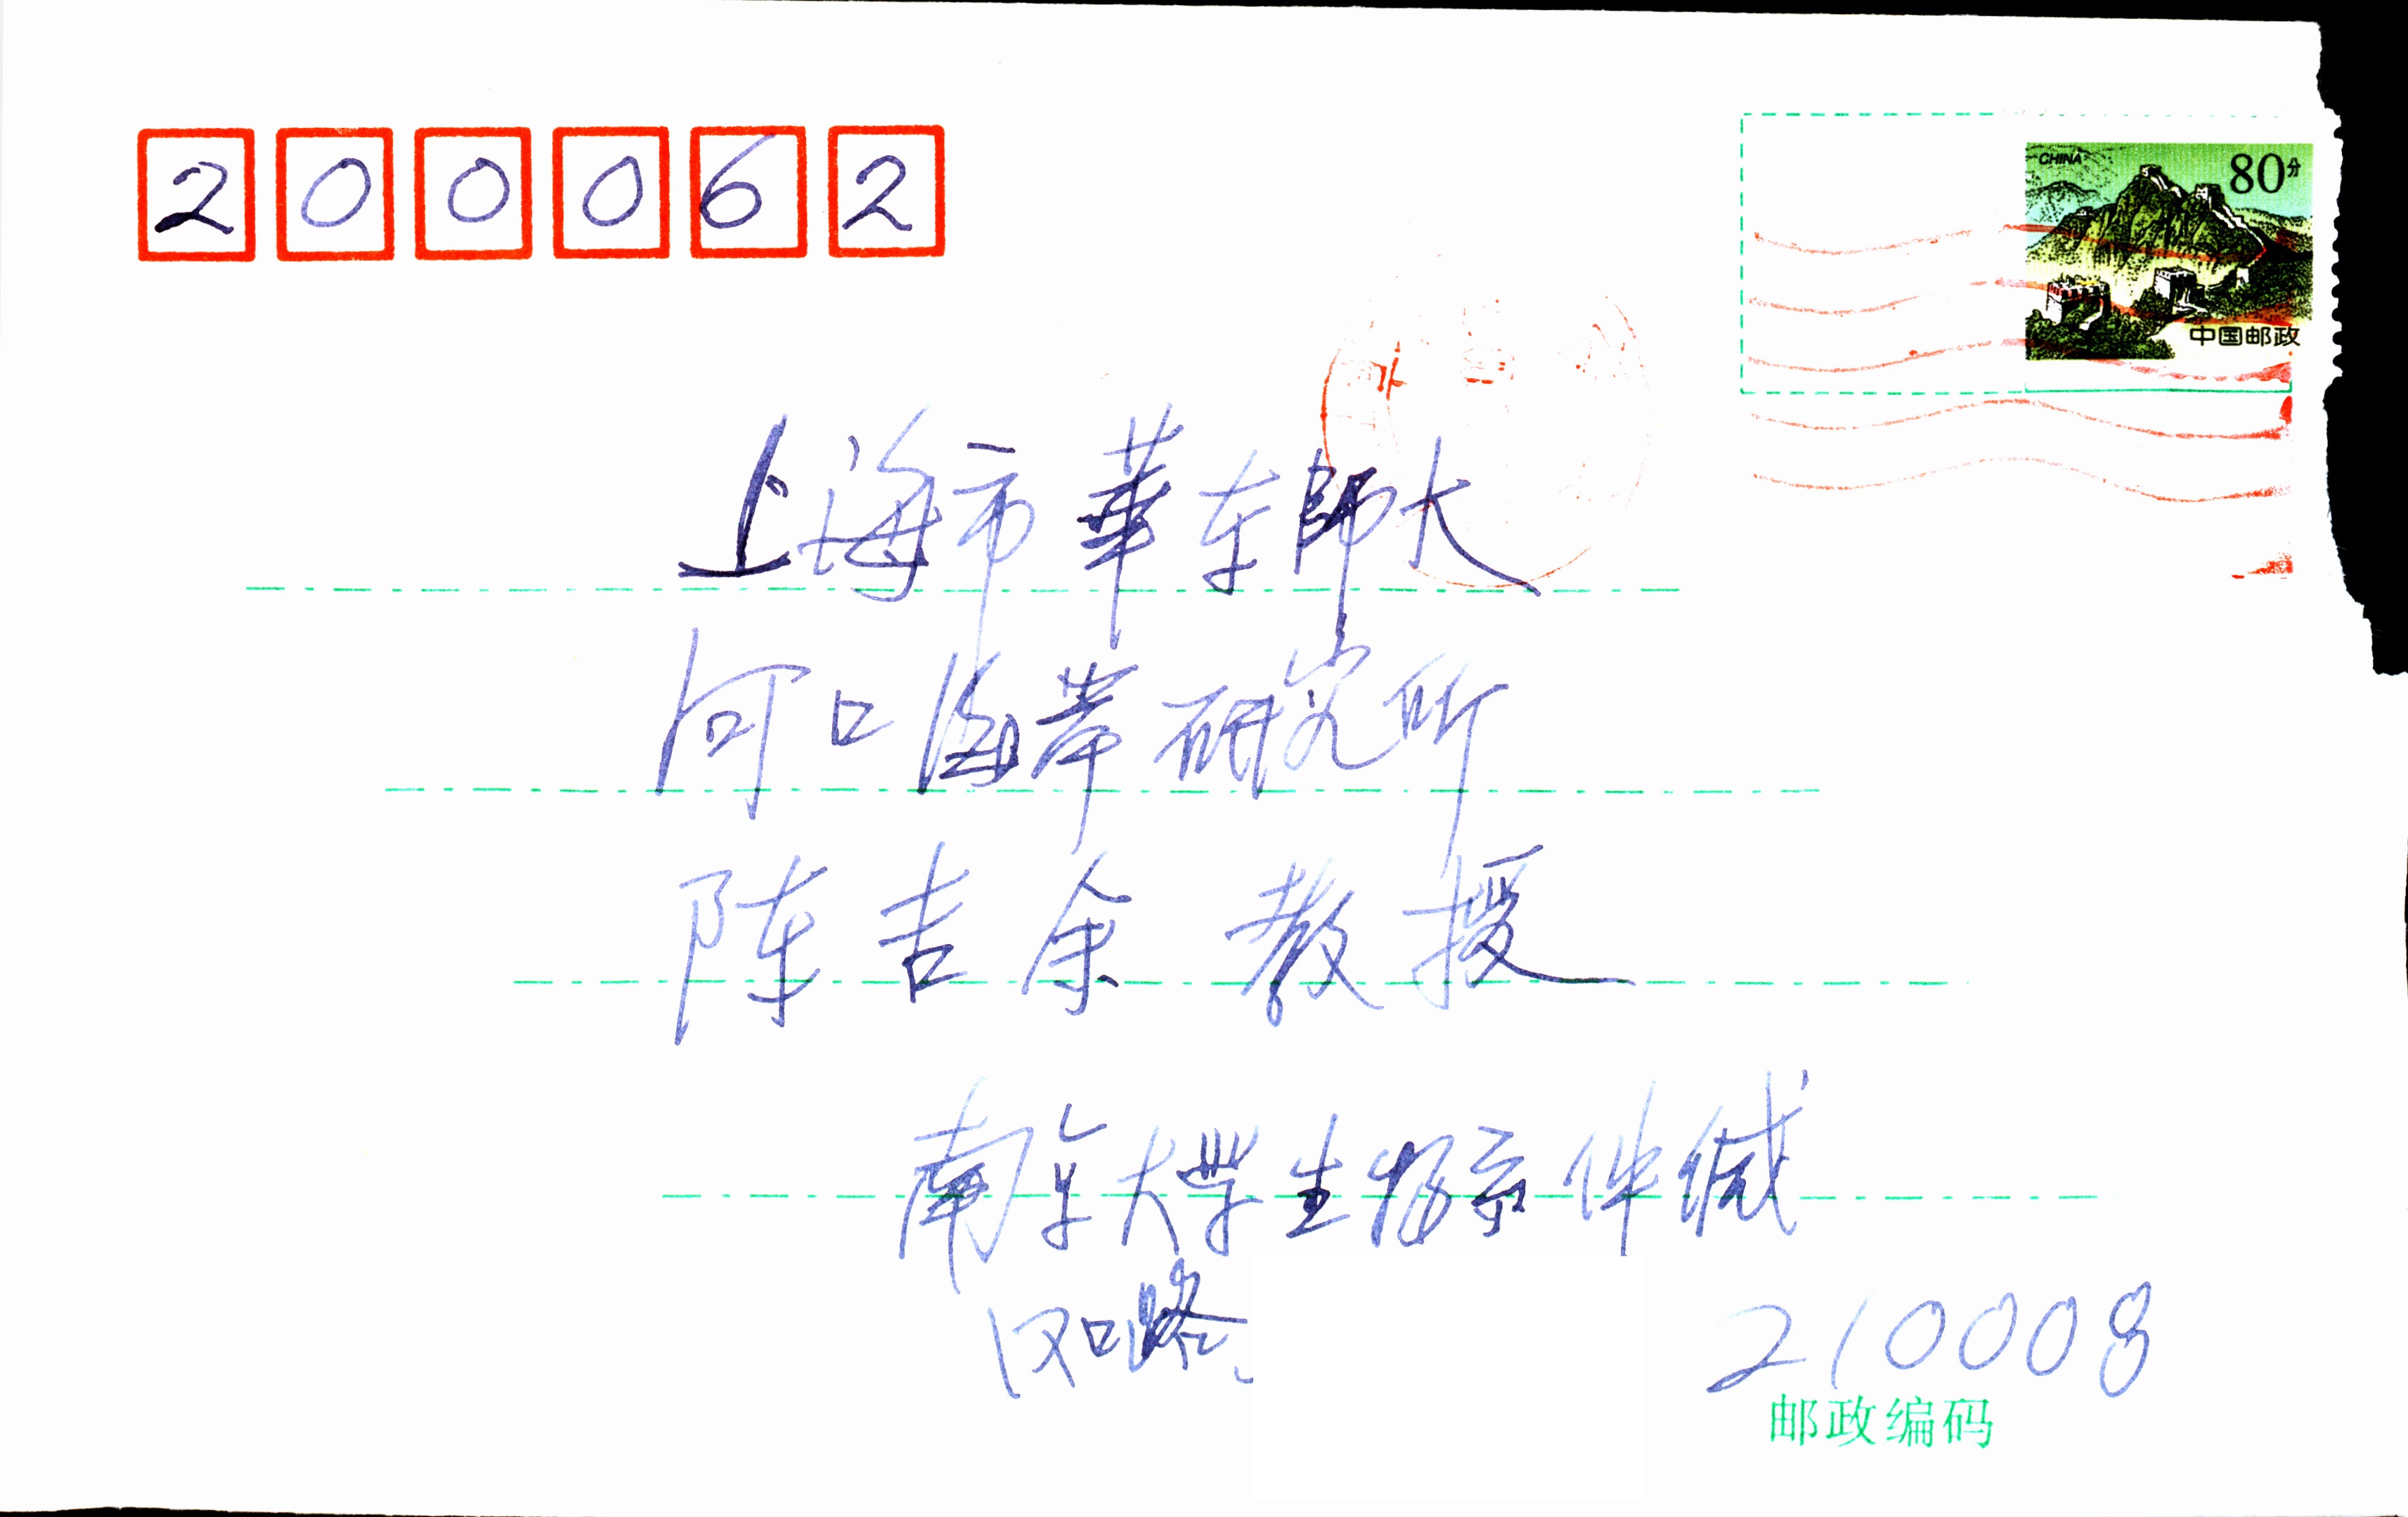 200062
CHINA 80分
中国邮政
上海市華东師大
河口海岸研究所
陈吉余 教授
南京大学生物系仲缄
汉口路
210008
邮政编码